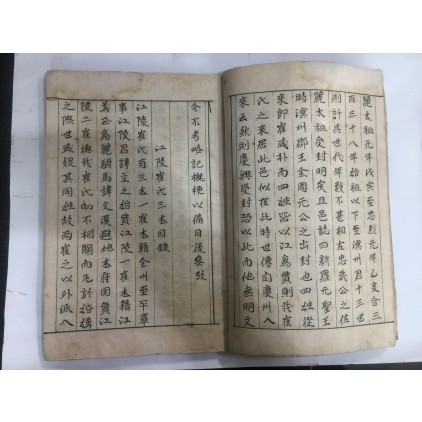 麗太祖元年戊寅至忠烈元年乙亥合三
百三十八年始祖以下至濱州君十三世
則計其世代年數不甚相左忠武公之佐
麗太祖受封明矣且邑誌曰新羅元聖王
時溟州郡王金周元公之出封也四姓從
來即崔咸朴而四姓皆以江爲貫則我崔
氏之來居此邑似在此時世傳自慶州入
來云然則慶興受封恐以此而他無明文
今不考略記概梗以備日後參攷
江陵崔氏三本目錄
江陵崔氏有三本一崔本籍全州至平章
事江陵君諱立之始貫江陵一崔本籍江
高麗駙馬諱文漢避地本府因貫江
陵二崔與我崔氏的不相關而至於婚媾
之際世或疑其同姓故兩崔之以外派入